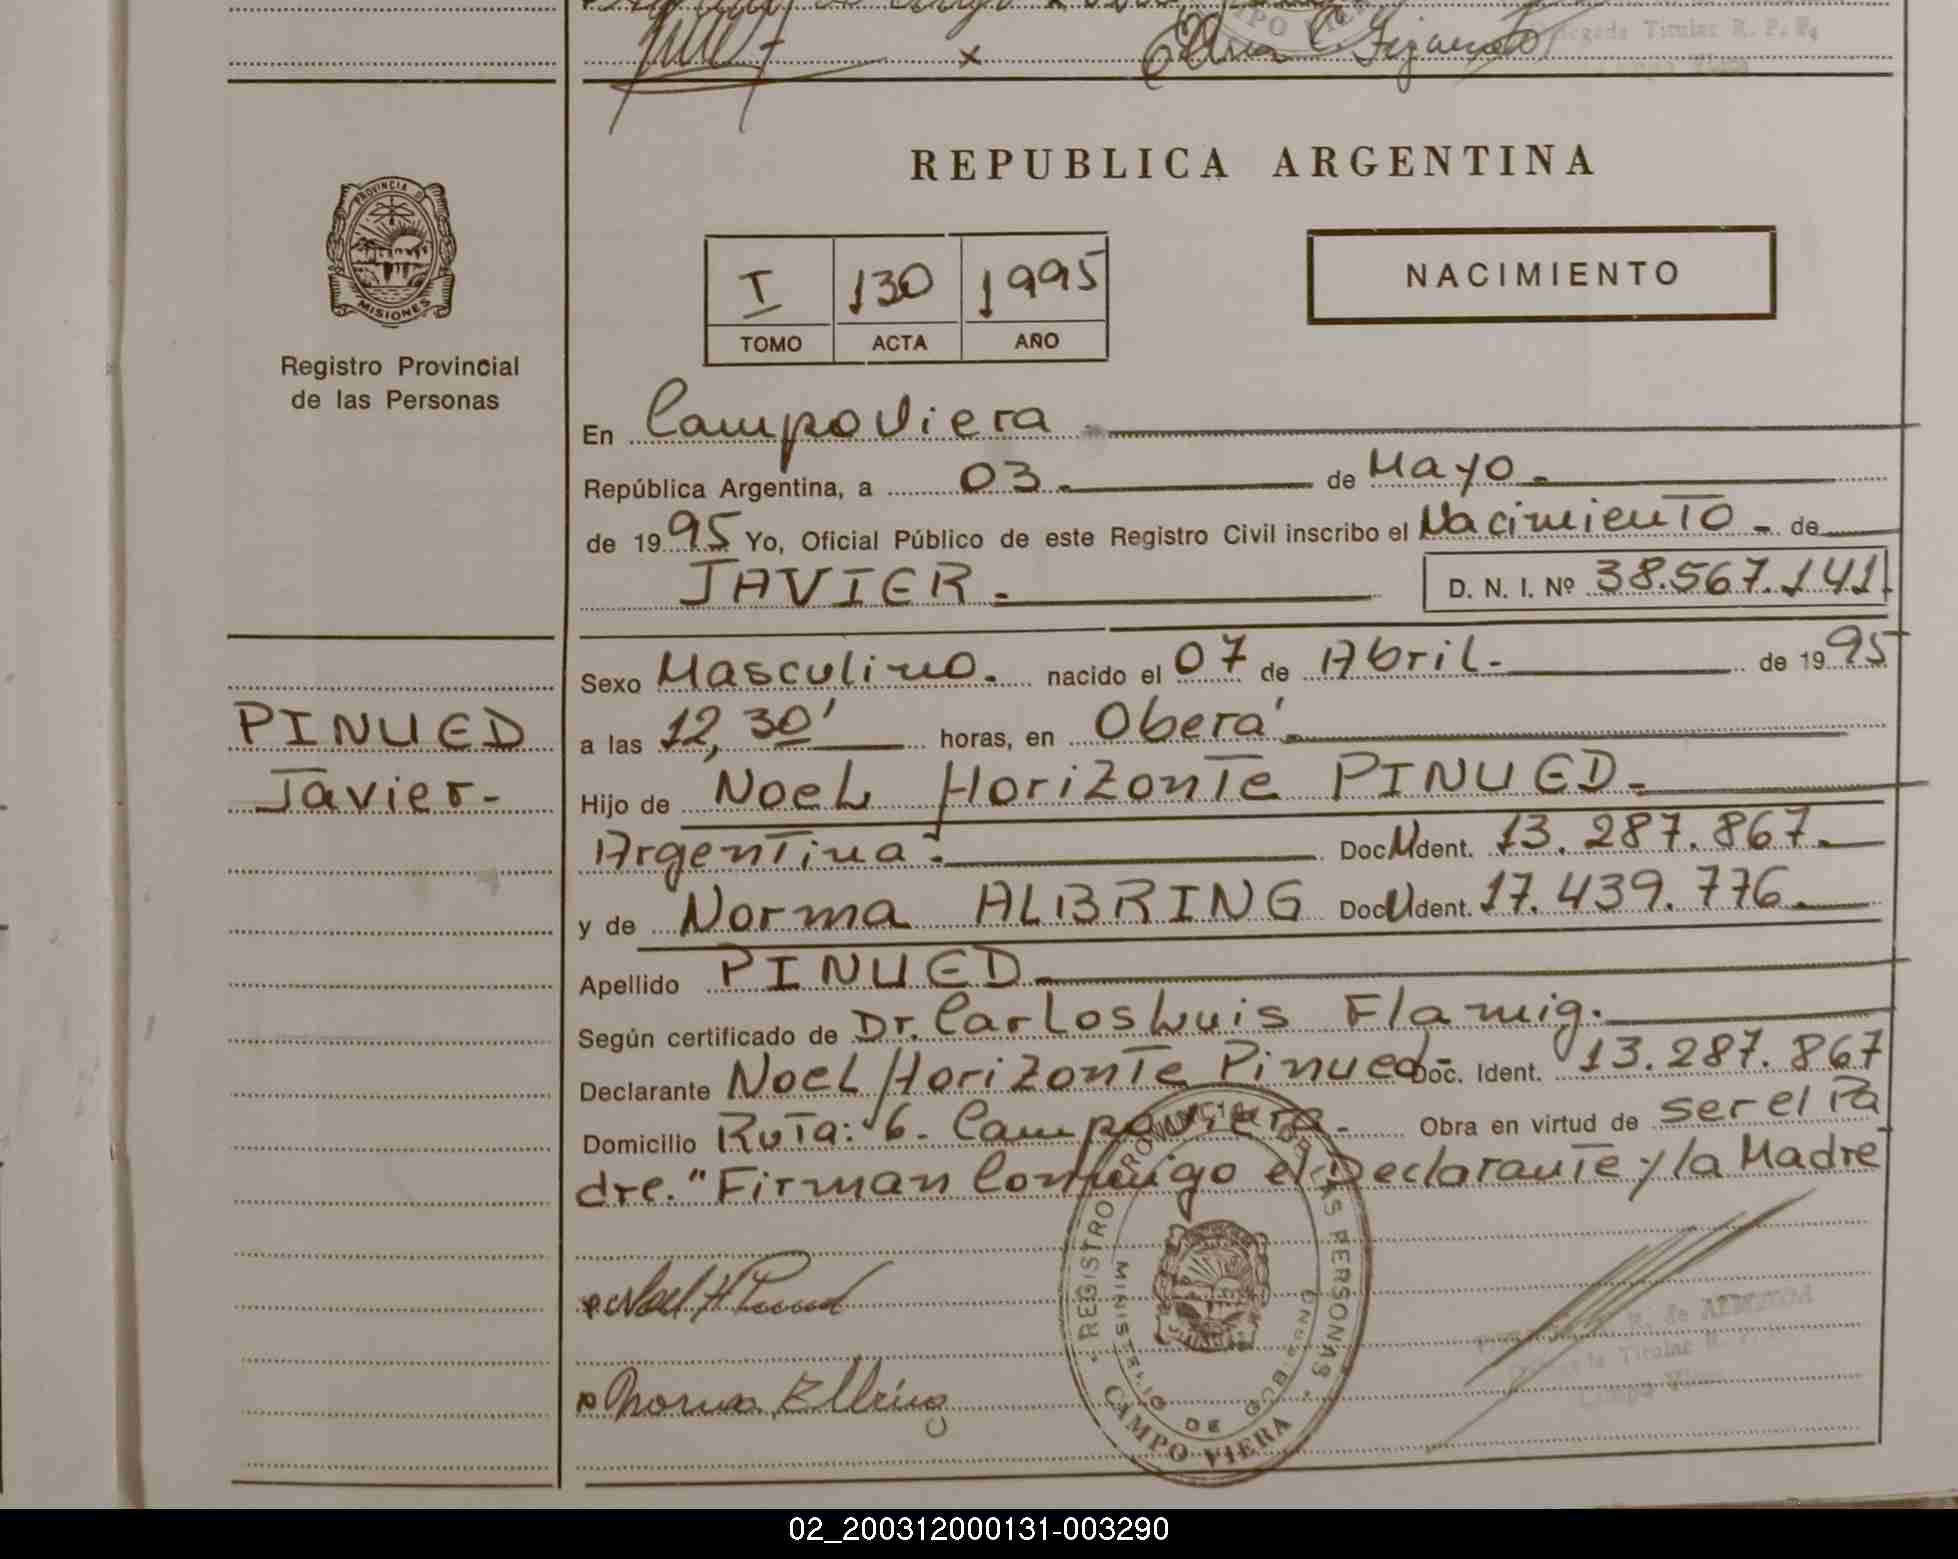 REPUBLICA ARGENTINA
PROVINCIA DE
MISIONES
Registro Provincial
de las Personas
I 130 1995
TOMO ACTA AÑO
NACIMIENTO
En Campo Viera
República Argentina, a 03. de Mayo.
de 1995 Yo, Oficial Público de este Registro Civil inscribo el Nacimiento - de
JAVIER. D. N. I. Nº 38.567.141.
PINUED
Javier-
Sexo Masculino. nacido el 07 de Abril. de 1995
a las 12,30' horas, en Oberá.
Hijo de Noel Horizonte PINUED.
Argentina. Doc. Ident. 13.287.867.
y de Norma ALBRING Doc. Ident. 17.439.776.
Apellido PINUED
Según certificado de Dr. Carlos Luis Flamig.
Declarante Noel Horizonte Pinued Doc. Ident. 13.287.867
Domicilio Ruta: 6. Campo Viera. Obra en virtud de ser el Pa
dre." Firman Conmigo el Declarante y la Madre
REGISTRO PROVINCIAL DE LAS PERSONAS
MINISTERIO DE GOBIERNO
CAMPO VIERA
02_200312000131-003290